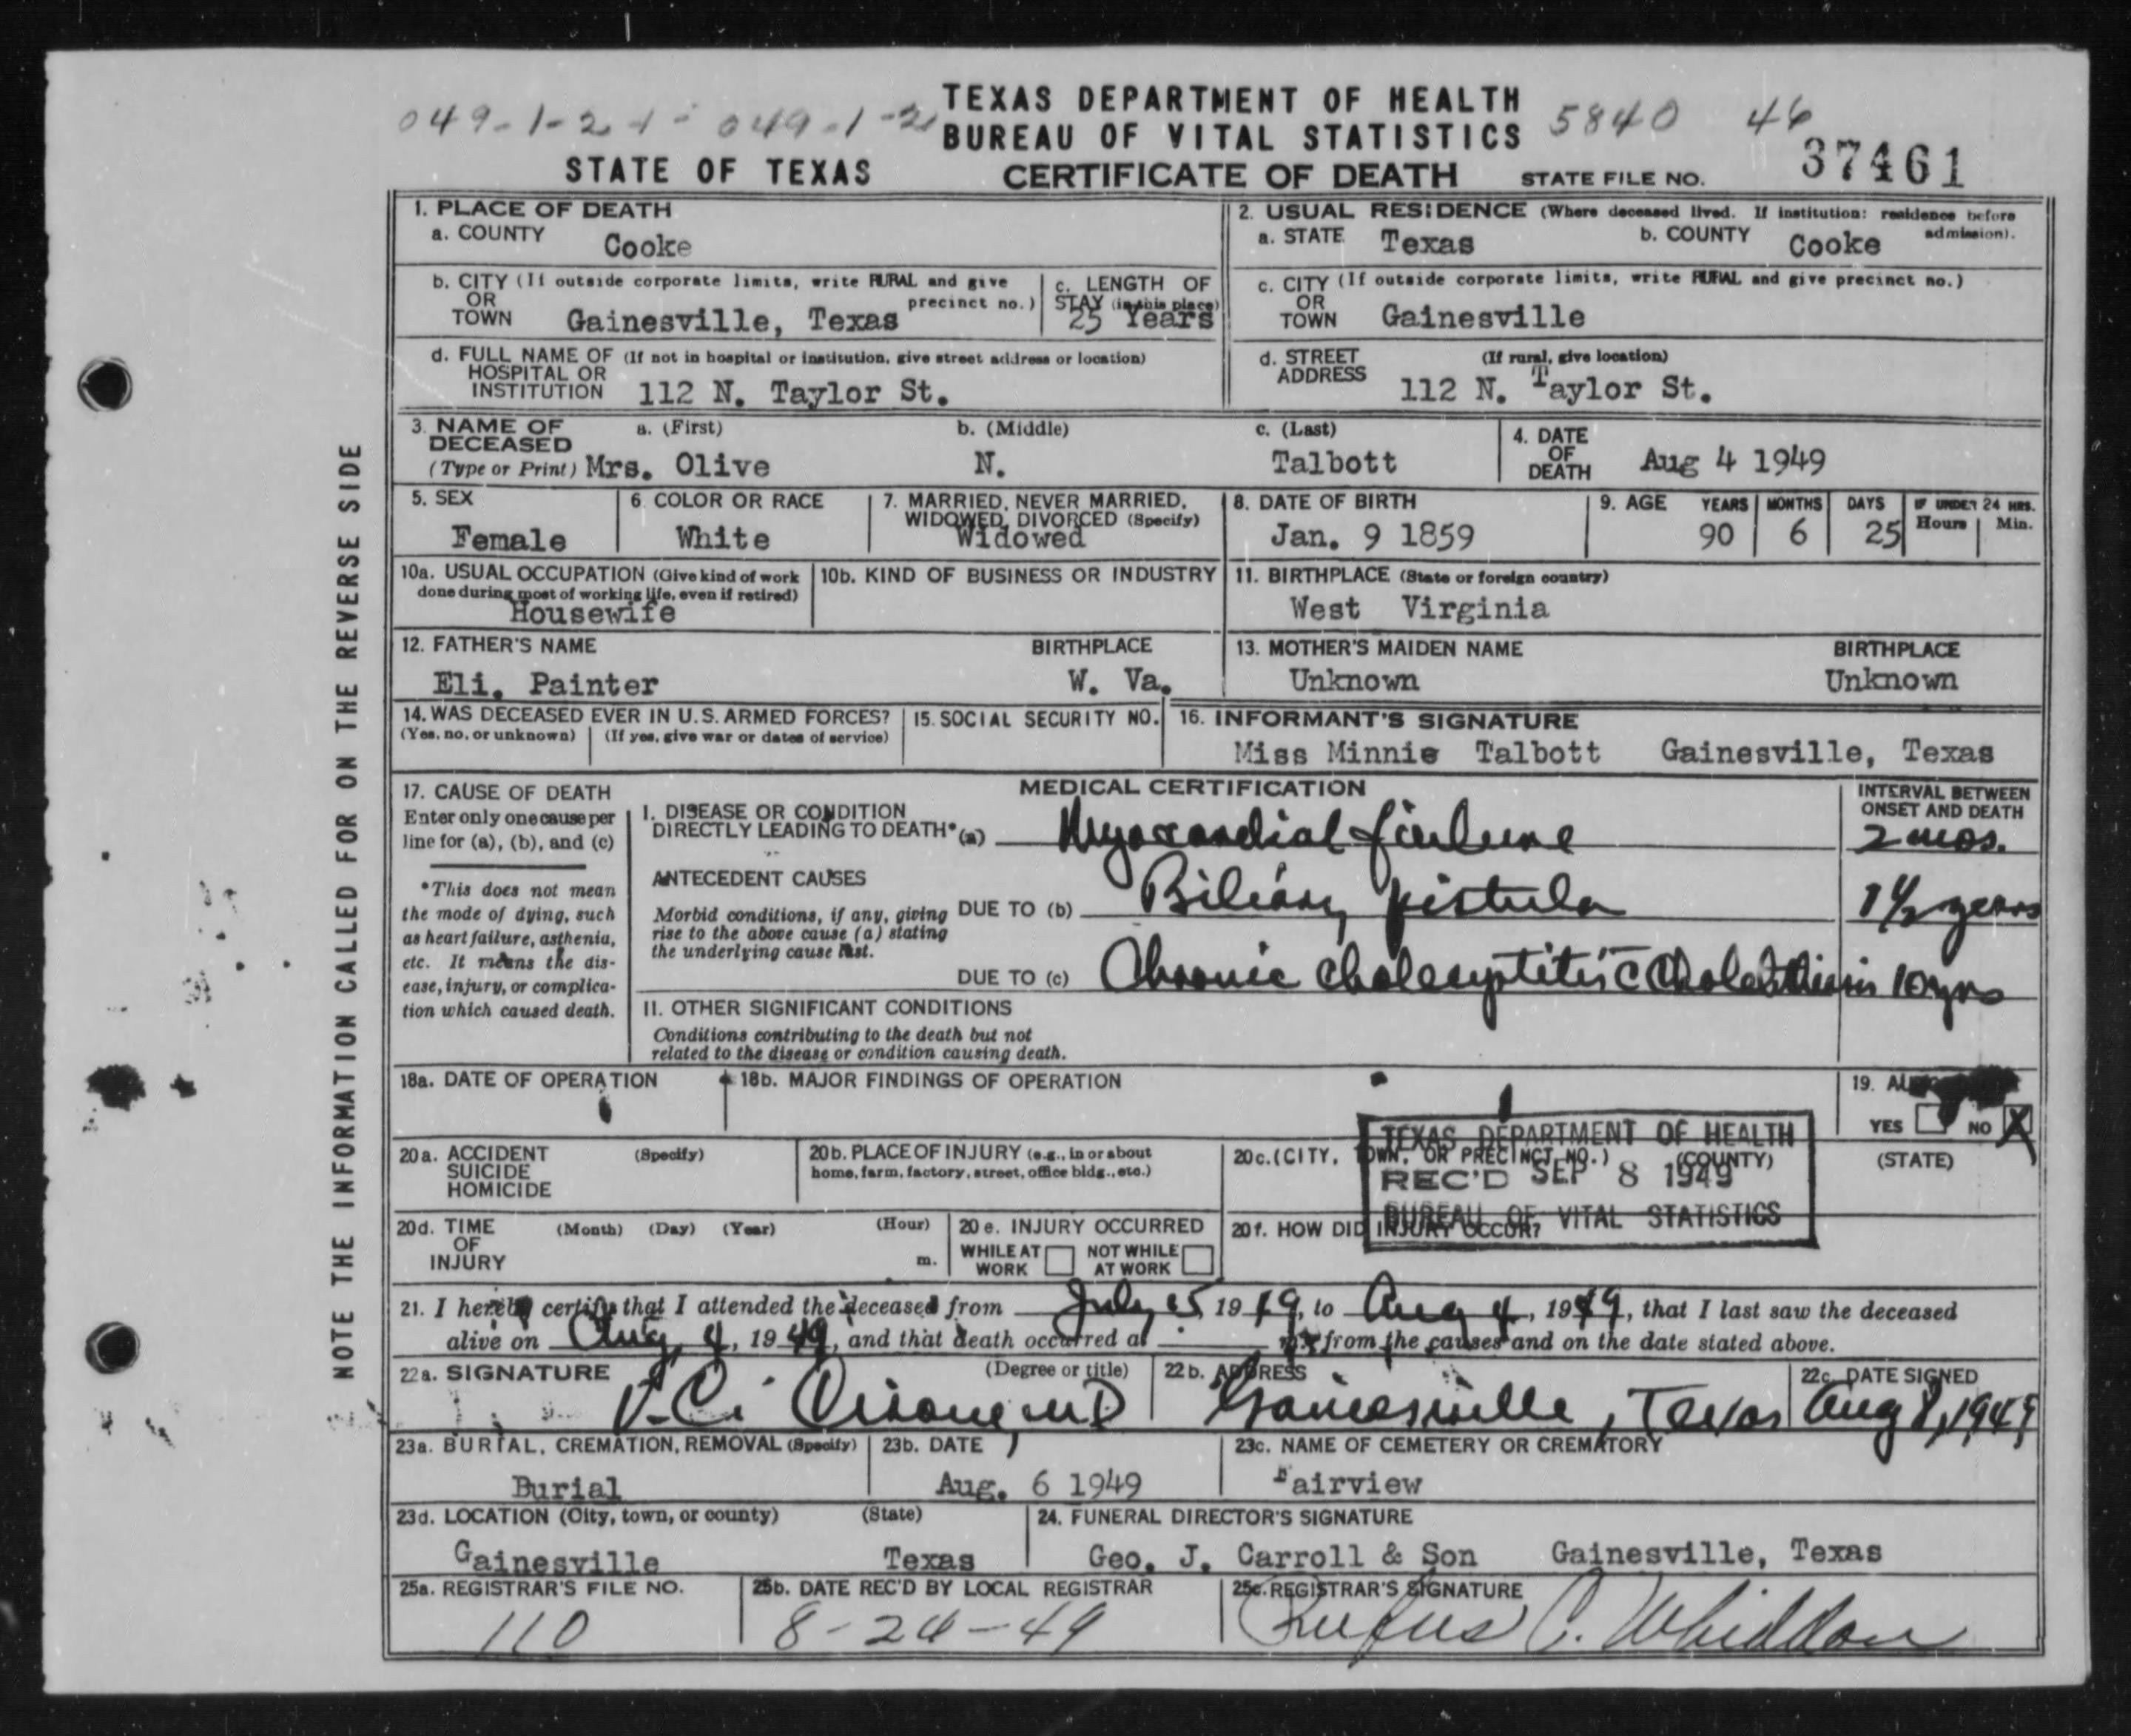 TEXAS DEPARTMENT OF HEALTH
BUREAU OF VITAL STATISTICS
049-1-21- 049-1-21
5840 46
STATE OF TEXAS CERTIFICATE OF DEATH STATE FILE NO. 37461
NOTE THE INFORMATION CALLED FOR ON THE REVERSE SIDE
1. PLACE OF DEATH
a. COUNTY Cooke
2. USUAL RESIDENCE (Where deceased lived. If institution: residence before admission).
a. STATE Texas b. COUNTY Cooke
b. CITY (If outside corporate limits, write RURAL and give precinct no.)
OR
TOWN Gainesville, Texas
c. LENGTH OF
STAY (in this place)
25 Years
c. CITY (If outside corporate limits, write RURAL and give precinct no.)
OR
TOWN Gainesville
d. FULL NAME OF (If not in hospital or institution, give street address or location)
HOSPITAL OR
INSTITUTION 112 N. Taylor St.
d. STREET (If rural, give location)
ADDRESS 112 N. Taylor St.
3. NAME OF a. (First) b. (Middle) c. (Last)
DECEASED
(Type or Print) Mrs. Olive N. Talbott
4. DATE
OF
DEATH Aug 4 1949
5. SEX
Female
6. COLOR OR RACE
White
7. MARRIED, NEVER MARRIED,
WIDOWED, DIVORCED (Specify)
Widowed
8. DATE OF BIRTH
Jan. 9 1859
9. AGE YEARS MONTHS DAYS IF UNDER 24 HRS.
Hours Min.
90 6 25
10a. USUAL OCCUPATION (Give kind of work
done during most of working life, even if retired)
Housewife
10b. KIND OF BUSINESS OR INDUSTRY
11. BIRTHPLACE (State or foreign country)
West Virginia
12. FATHER'S NAME BIRTHPLACE
Eli. Painter W. Va.
13. MOTHER'S MAIDEN NAME BIRTHPLACE
Unknown Unknown
14. WAS DECEASED EVER IN U.S. ARMED FORCES?
(Yes, no, or unknown) (If yes, give war or dates of service)
15. SOCIAL SECURITY NO.
16. INFORMANT'S SIGNATURE
Miss Minnie Talbott Gainesville, Texas
17. CAUSE OF DEATH
Enter only one cause per
line for (a), (b), and (c)
*This does not mean
the mode of dying, such
as heart failure, asthenia,
etc. It means the dis-
ease, injury, or complica-
tion which caused death.
MEDICAL CERTIFICATION
INTERVAL BETWEEN
ONSET AND DEATH
I. DISEASE OR CONDITION
DIRECTLY LEADING TO DEATH* (a) Myocardial failure 2 mos.
ANTECEDENT CAUSES
Morbid conditions, if any, giving
rise to the above cause (a) stating
the underlying cause last.
DUE TO (b) Biliary fistula 1 1/2 years
DUE TO (c) Chronic cholecystitis c Cholelithiasis 10 yrs
II. OTHER SIGNIFICANT CONDITIONS
Conditions contributing to the death but not
related to the disease or condition causing death.
18a. DATE OF OPERATION
18b. MAJOR FINDINGS OF OPERATION
19.
YES NO X
20a. ACCIDENT (Specify)
SUICIDE
HOMICIDE
20b. PLACE OF INJURY (e.g., in or about
home, farm, factory, street, office bldg., etc.)
20c. (CITY, TOWN, OR PRECINCT NO.) (COUNTY) (STATE)
TEXAS DEPARTMENT OF HEALTH
REC'D SEP 8 1949
BUREAU OF VITAL STATISTICS
20d. TIME (Month) (Day) (Year) (Hour)
OF
INJURY m.
20e. INJURY OCCURRED
WHILE AT WORK NOT WHILE AT WORK
20f. HOW DID INJURY OCCUR?
21. I hereby certify that I attended the deceased from July 1949, to Aug 4, 1949, that I last saw the deceased
alive on Aug. 4, 1949, and that death occurred at m., from the causes and on the date stated above.
22a. SIGNATURE (Degree or title)
MD
22b. ADDRESS
Gainesville, Texas
22c. DATE SIGNED
Aug 8, 1949
23a. BURIAL, CREMATION, REMOVAL (Specify)
Burial
23b. DATE
Aug. 6 1949
23c. NAME OF CEMETERY OR CREMATORY
Fairview
23d. LOCATION (City, town, or county) (State)
Gainesville Texas
24. FUNERAL DIRECTOR'S SIGNATURE
Geo. J. Carroll & Son Gainesville, Texas
25a. REGISTRAR'S FILE NO.
110
25b. DATE REC'D BY LOCAL REGISTRAR
8-24-49
25c. REGISTRAR'S SIGNATURE
Rufus C. Whiddon